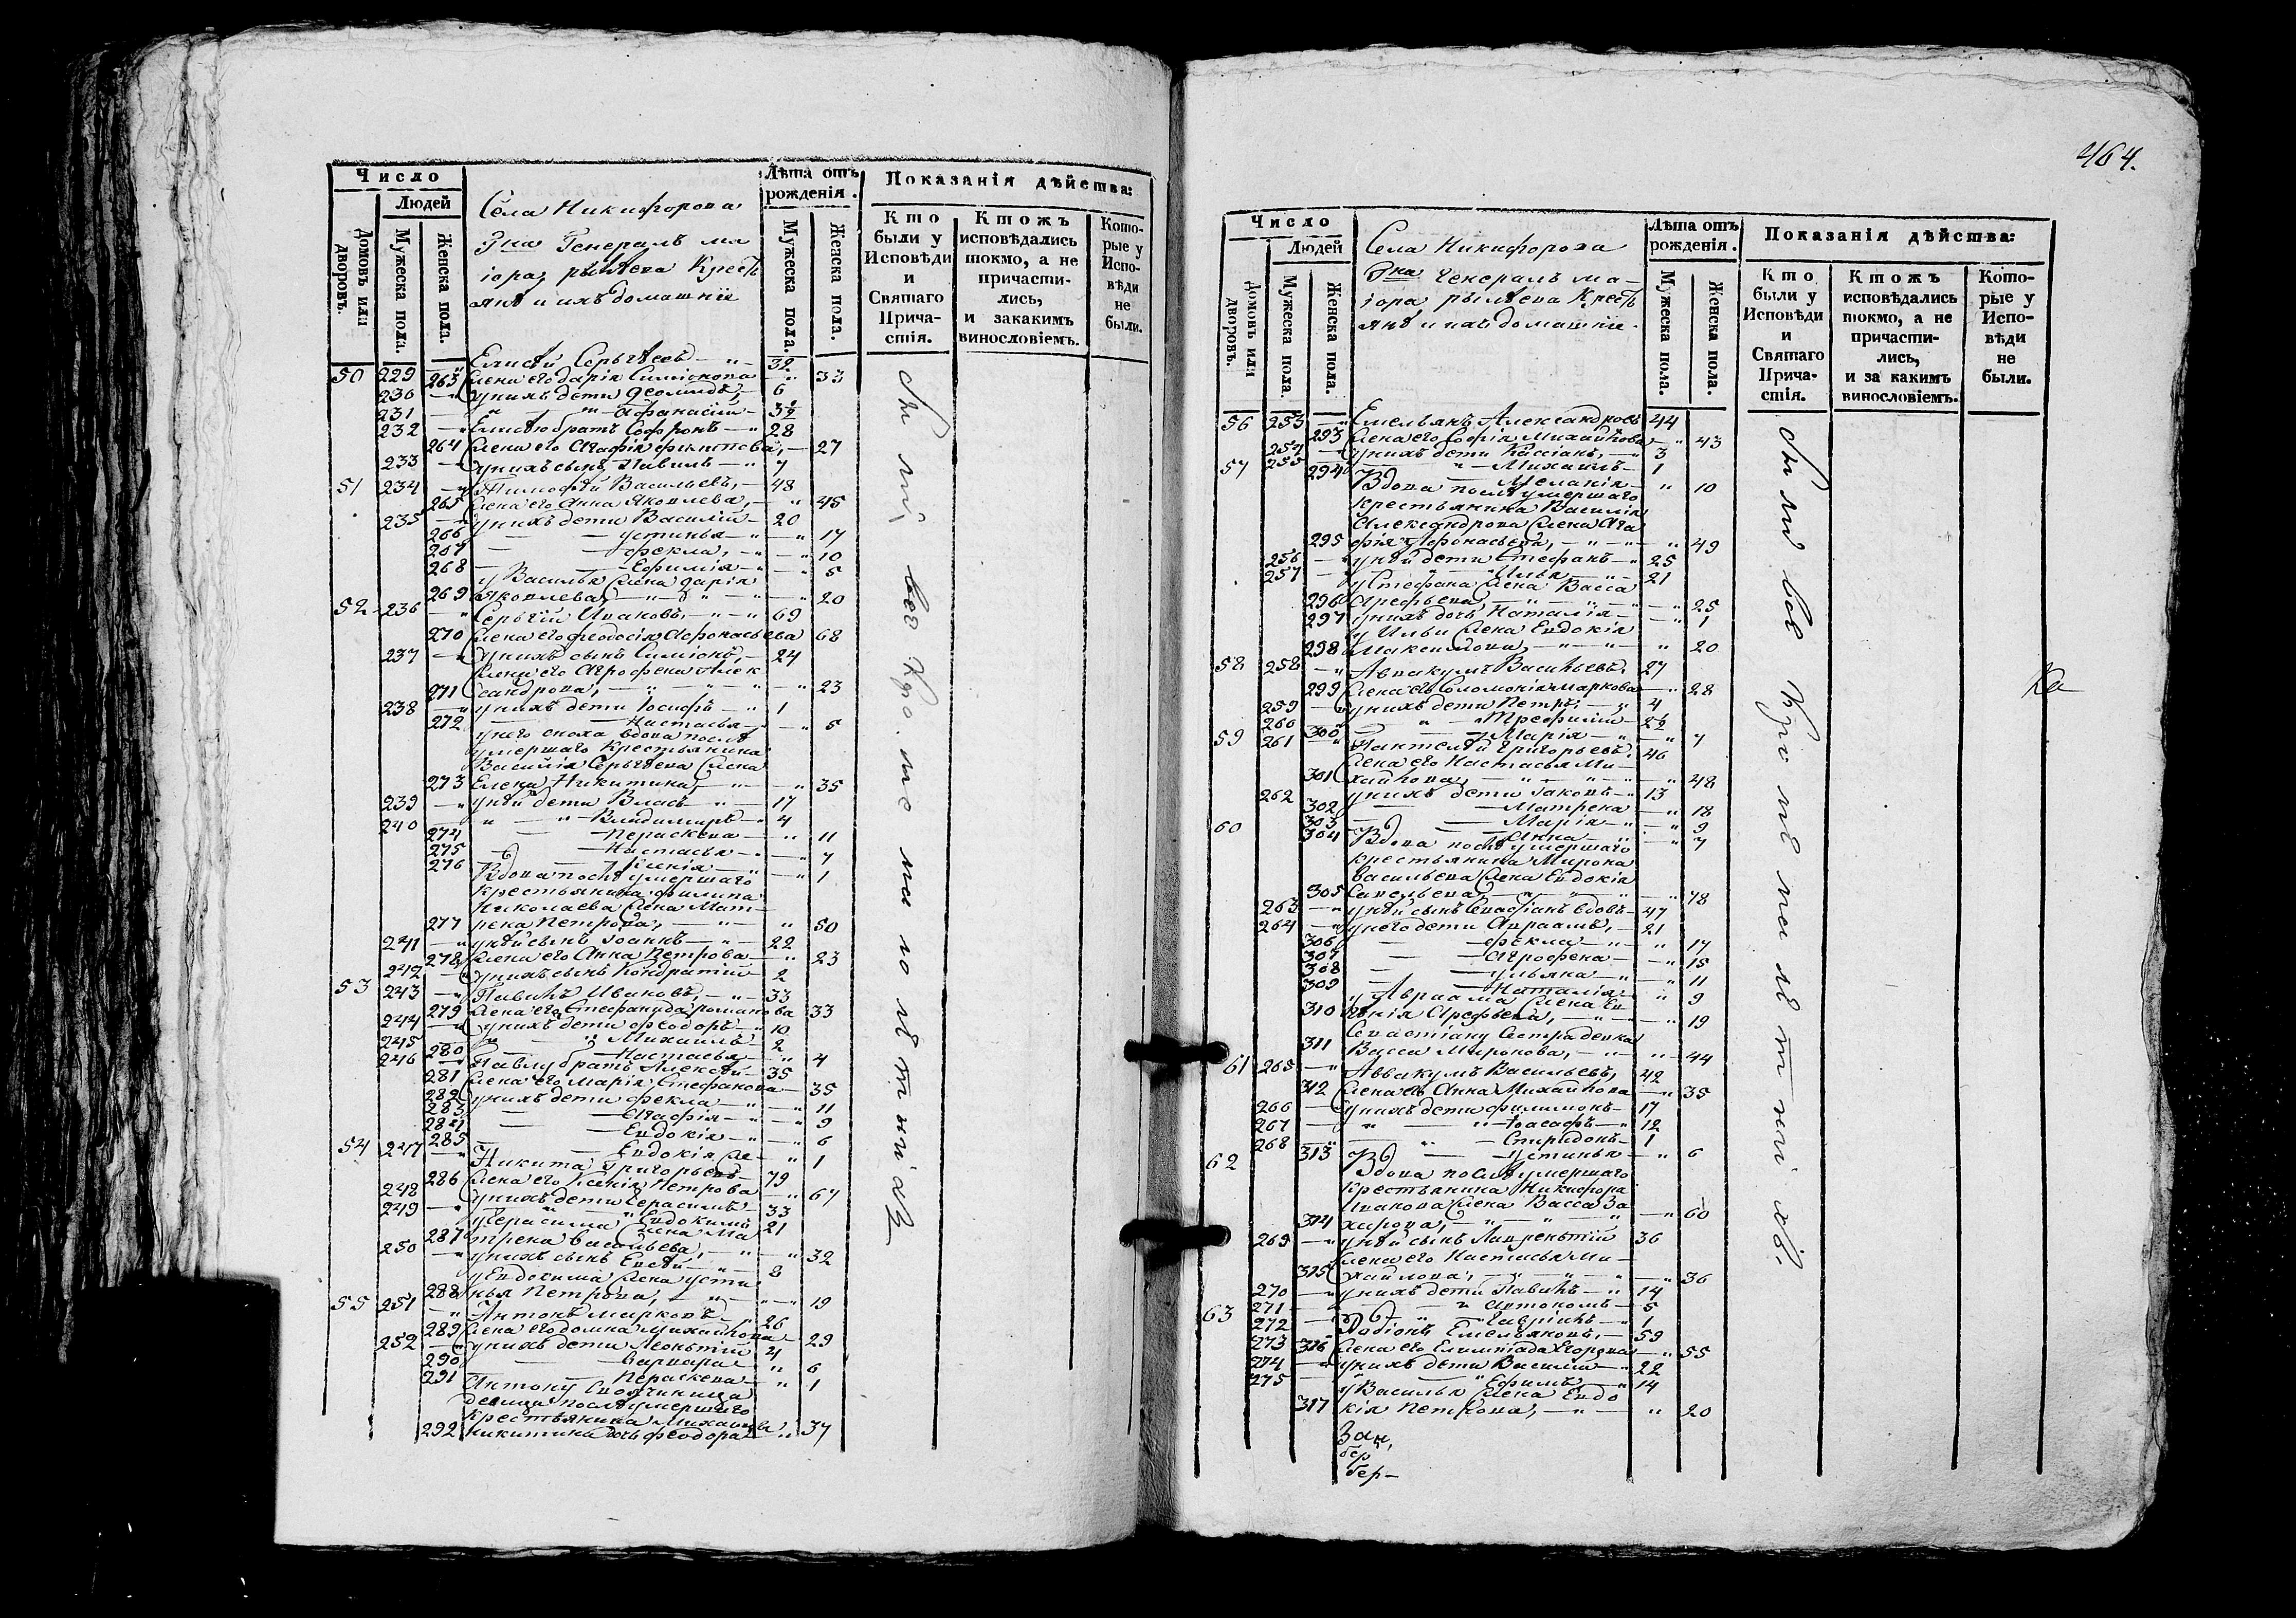 Число
Людей
Домовъ или дворовъ.
Мужеска пола.
Женска пола.
Села Никифорова
Гна Генералъ ма
іора рылѣева Кресть
янѣ и ихъ домашніе
Лѣта отъ рожденія.
Мужеска пола.
Женска пола.
Показанія дѣйства:
Кто были у Исповѣди и Святаго Прича- стія.
Ктожъ исповѣдались токмо, а не причасти- лись, и закакимъ винословіемъ.
Кото- рые у Испо- вѣди не были.
50 229 — Елисѣй Сергѣевъ — 32
263 Жена его дарія Симіонова — 33
230 — у нихъ дети — 6
231 — Афанасій — 3½
232 — Елисѣю братъ Софронъ — 28
264 Жена его Агафія — 27
233 — у нихъ сынъ Павилъ — 7
51 234 — Тимофѣй Васильевъ, — 48
265 Жена его Анна Яковлева, — 45
235 — у нихъ дети Василій — 20
266 — устинья — 17
267 — фекла, — 10
268 — Ефимія — 5
у Василья Жена дарія
269 Яковлева, — 20
52 236 — Сергѣй Ивановъ, — 69
270 Жена его феодосія Афонасьева 68
237 — у нихъ сынъ Симіонъ, — 24
Жена его Агрофена Алек
271 сандрова, — 23
238 — у нихъ дети Іосифъ — 1
272 — Настасья — 5
у него сноха вдова послѣ
умершаго Крестьянина
Василія Сергѣева Жена
273 Елена Никитина, — 35
239 — у ней дети Власъ — 17
240 — Владимиръ — 4
274 — Пераскева — 11
275 — Настасья — 7
276 — Ксенія — 1
Вдова послѣ умершаго
крестьянина филипа
Николаева Жена Мат-
277 рена Петрова, — 50
241 — у ней сынъ Іоаннъ — 22
278 Жена его Анна Петрова — 23
242 — у нихъ сынъ Кондратій — 2
53 243 — Павилъ Ивановъ, — 33
279 Жена его Стефанида романова 33
244 — у нихъ дети феодоръ — 10
245 — Михаилъ — 2
280 — Настасья — 4
246 — Павлу братъ Алексѣй — 35
281 Жена его Марія Стефанова — 35
282 у нихъ дети фекла — 11
283 — Агафія — 9
284 — Евдокія — 6
285 — Евдокія же — 1
54 247 — Никита Григорьевъ — 79
286 Жена его Ксенія Петрова — 67
248 — у нихъ дети Герасимъ — 33
249 — Евдокимъ 21
у Герасима Жена Ма
287 трена васильева, — 32
250 — у нихъ сынъ Евсѣй — 8
у Евдокима Жена усти
288 нья Петрова, — 19
55 251 — Антонъ Марковъ — 26
289 Жена его домна Михайлова — 29
252 — у нихъ дети Леонтій 4
290 — варвара — 6
291 — Пераскева — 1
Антону
девица послѣ умершаго
крестьянина Михаила
292 никитина дочь феодора — 37
были все Кро.ме ма ло лѣтнихъ
464.
Число
Людей
Домовъ или дворовъ.
Мужеска пола.
Женска пола.
Села Никифорова
Гна Генералъ ма-
іора рылѣева Кресть
янѣ и ихъ домашніе.
Лѣта отъ рожденія.
Мужеска пола.
Женска пола.
Показанія дѣйства:
Кто были у Исповѣди и Святаго Прича- стія.
Ктожъ исповѣдались токмо, а не причасти- лись, и за какимъ винословіемъ.
Кото- рые у Испо- вѣди не были.
56 253 — Емельянъ Александровъ 44
293 Жена его Софія Михайлова — 43
254 — у нихъ дети Кассіанъ, — 3
255 — Михаилъ — 1
57 294 — Меланія — 10
Вдова послѣ умершаго
крестьянина Василія
Александрова Жена Ага
295 фія Афонасьева, — 49
256 — у ней дети Стефанъ — 25
257 — Илья — 21
у Стефана Жена Васса
296 Арефьева, — 25
297 у нихъ дочь Наталія — 1
у Ильи Жена Евдокія
298 Максимова, — 20
58 258 — Авакумъ Васильевъ, 27
299 Жена его Соломонія Маркова — 28
259 — у нихъ дети Петръ, — 4
260 — Трефилій — 2½
300 — Марія — 7
59 261 — Пантелѣй Григорьевъ, 46
Жена его Настасья Ми-
301 хайлова, — 48
262 у нихъ дети Іаковъ — 13
302 — Матрена — 18
303 — Марія — 9
304 — Анна — 7
60 Вдова послѣ умершаго
крестьянина Мирона
васильева Жена Евдокія
305 Савельева, — 78
263 — у ней сынъ Севастіанъ вдовъ — 47
264 — у него дети Авраамъ, — 21
306 — фекла — 17
307 — Агрофена — 15
308 — ульяна — 11
309 — Наталія — 9
у Авраама Жена Ев
310 Арефьева, — 19
Севастіану
311 Васса Миронова, — 44
61 265 — Аввакумъ Васильевъ, 42
312 Жена его Анна Михайлова — 35
266 — у нихъ дети филимонъ — 17
267 — Іоасафъ — 12
268 — Спиридонъ — 1
313 — Устинья — 6
62 Вдова послѣ умершаго
крестьянина Никифора
Иванова Жена Васса За
314 харова, — 60
269 — у ней сынъ Лаврентій 36
Жена его Настасья Ми-
315 хайлова, — 36
270 — у нихъ дети Павилъ — 14
271 — Автономъ — 5
272 — Гаврілъ — 1
63 273 — Родіонъ Емельяновъ, — 59
316 Жена его Егорова — 55
274 — у нихъ дети Василій — 22
275 — Ефимъ — 14
у Василья Жена Евдо
317 кія Петрова, — 20
были все Кро мѣ ма лѣтнихъ.